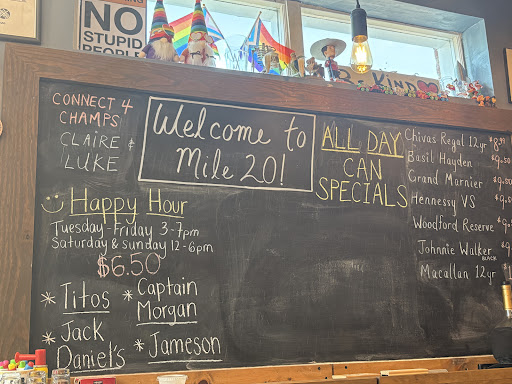 NO
STUPID
PEOPLE
BE KIND
CONNECT 4
CHAMPS
CLAIRE &
LUKE
Welcome to
Mile 20!
ALL DAY
CAN
SPECIALS
Chivas Regal 12yr
Basil Hayden
Grand Marnier
Hennessy VS
Woodford Reserve
Johnnie Walker
BLACK
Macallan 12yr
Happy Hour
Tuesday-Friday 3-7pm
Saturday & Sunday 12-6pm
$6.50
* Titos
* Jack
Daniel's
* Captain
Morgan
* Jameson